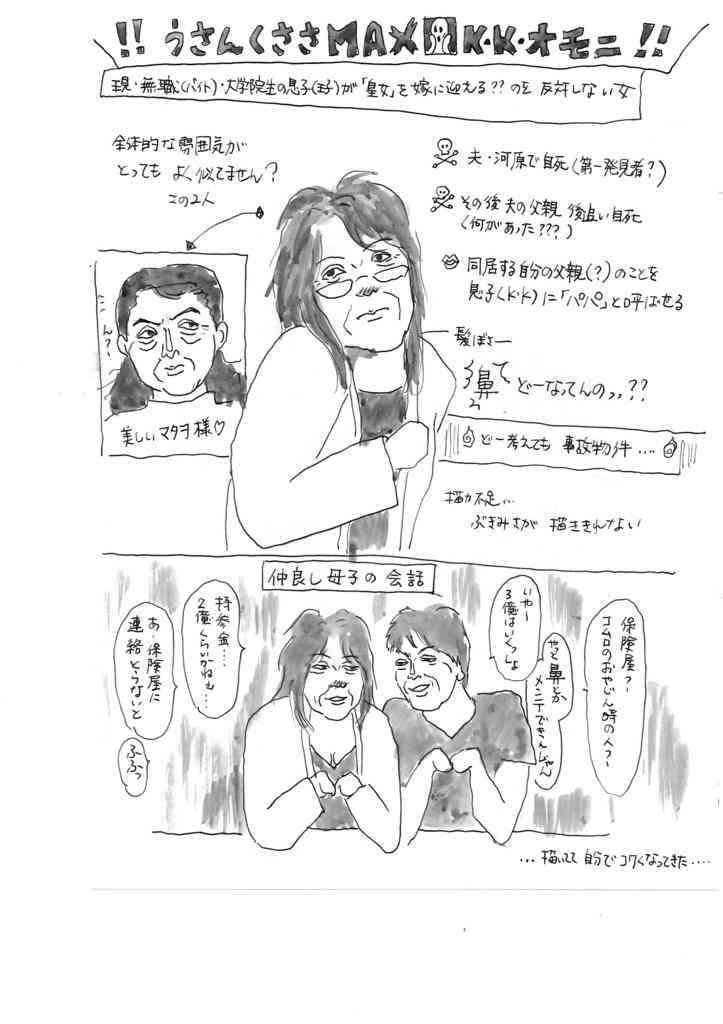 !! うさんくささMAX K・K・オモニ !!
現・無職(バイト)・大学院生の息子(王子)が「皇女」を嫁に迎える??のを反対しない女
全体的な雰囲気が
とっても よく似てません?
この2人
夫・河原で自死(第一発見者?)
その後 夫の父親 後追い自死
(何があった???)
同居する自分の父親(?)のことを
息子(K・K)に「パパ」と呼ばせる
髪ぼさー
鼻
どーなってんのッッ??
ん?〜
美しいマタヲ様♡
どー考えても 事故物件....
描力不足...
ぶきみさが 描ききれない
仲良し母子の会話
保険屋?〜
コムロのおやじん時の人?〜
いや〜
3億はいくっしょ
やっと鼻とか
メンテできんじゃん
持参金....
2億くらいかねぇ...
あ・保険屋に
連絡とらないと
ふふっ
...描いてて 自分で コワくなってきた....